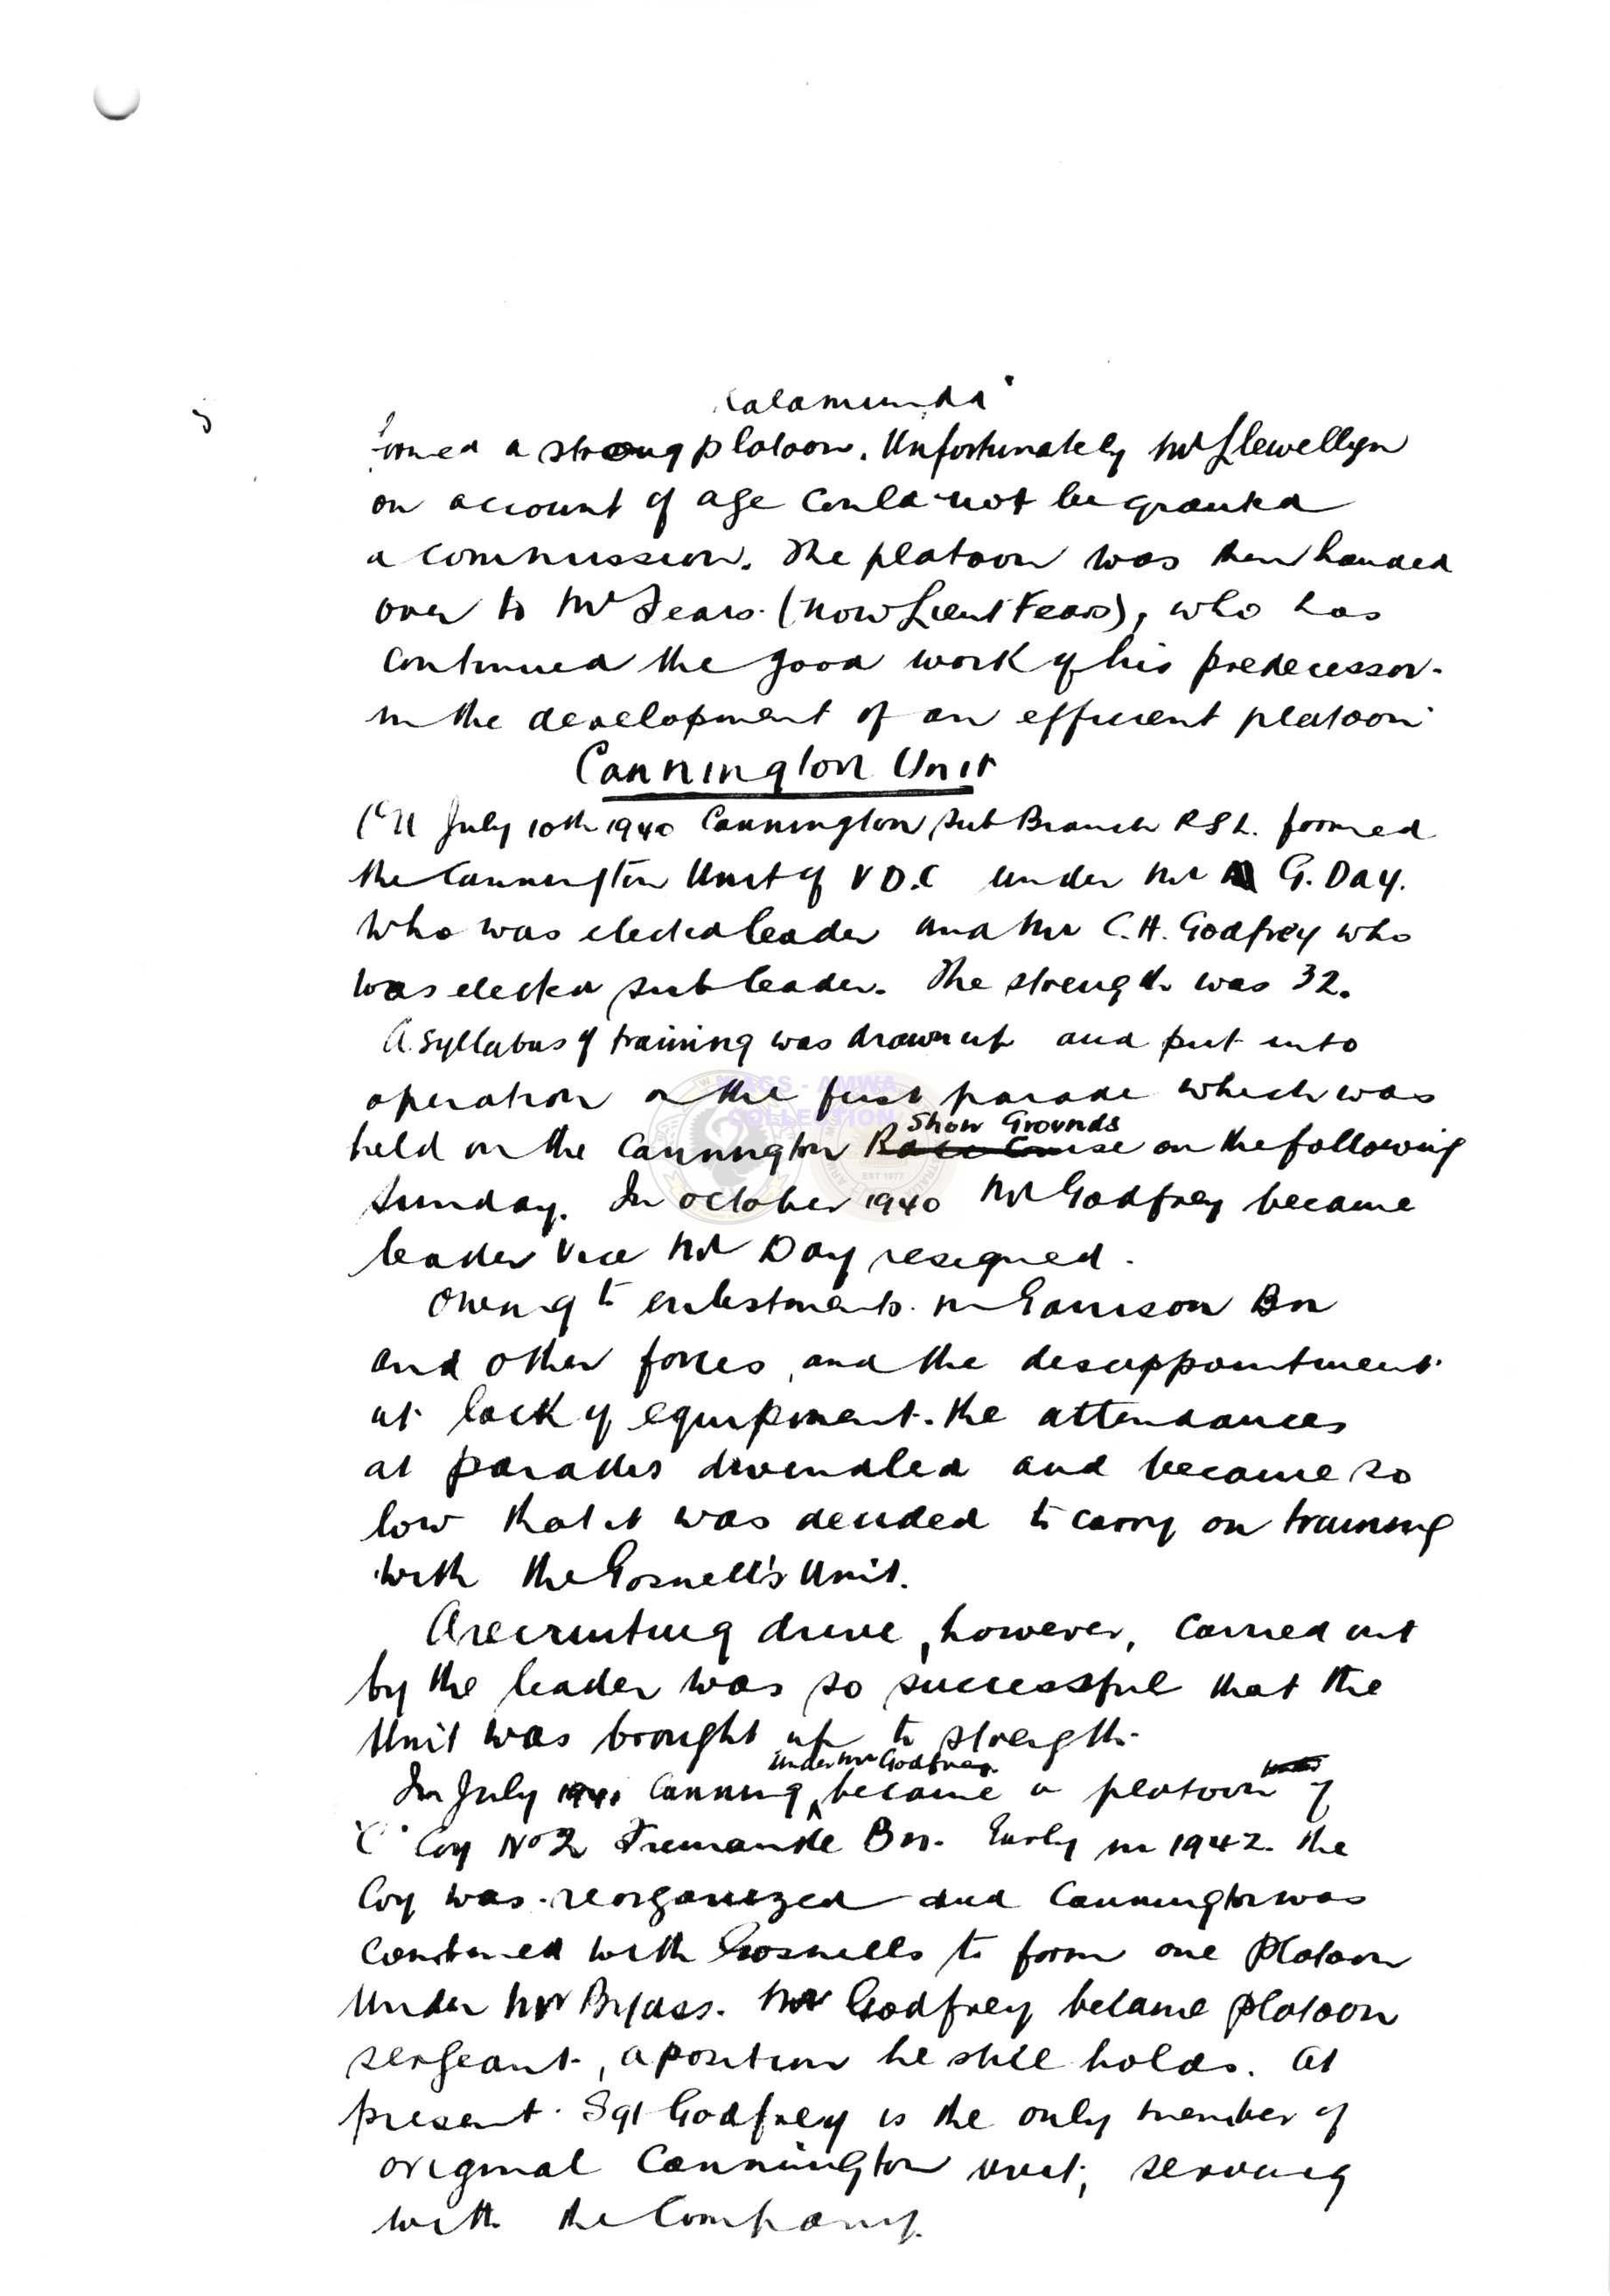 Kalamunda
formed a strong platoon. Unfortunately Mr Llewellyn
on account of age could not be granted
a commission. The platoon was then handed
over to Mr Fears (now Lieut Fears), who has
continued the good work of his predecessor
in the development of an efficient platoon
Cannington Unit
On July 10th 1940 Cannington Sub Branch RSL. formed
the Cannington Unit of V D.C under Mr G. Day.
who was elected leader and Mr C.H. Godfrey who
was elected sub leader. The strength was 32.
A syllabus of training was drawn up and put into
operation on the first parade which was
Show Grounds
held on the Cannington Race Course on the following
Sunday. In October 1940 Mr Godfrey became
leader vice Mr Day resigned.
Owing to enlistments in Garrison Bn
and other forces, and the disappointment
at lack of equipment. the attendances
at parades dwindled and became so
low that it was decided to carry on training
with the Gosnell's Unit.
A recruiting drive, however, carried out
by the leader was so successful that the
Unit was brought up to strength.
under Mr Godfrey
In July 1941 Canning became a platoon of
'C' Coy No 2 Fremantle Bn. Early in 1942. the
Coy was reorganized and Cannington was
combined with Gosnells to form one Platoon
under Mr Bylass. Mr Godfrey became platoon
sergeant, a position he still holds. At
present Sgt Godfrey is the only member of
original Cannington unit, serving
with the Company.
WAGS - AMWA
COLLECTION
EST 1977